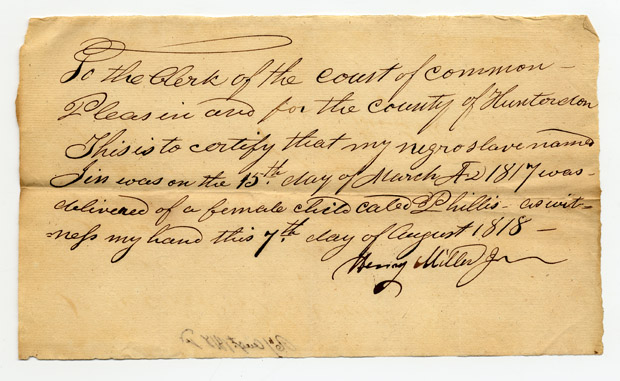 To the Clerk of the court of common –
Pleas in and for the county of Hunterdon
This is to certify that my negro slave named
Jin was on the 15th. day of March AD 1817 was–
delivered of a female child caled Phillis – as wit-
ness my hand this 7th. day of August 1818 –
Henry Miller Jr